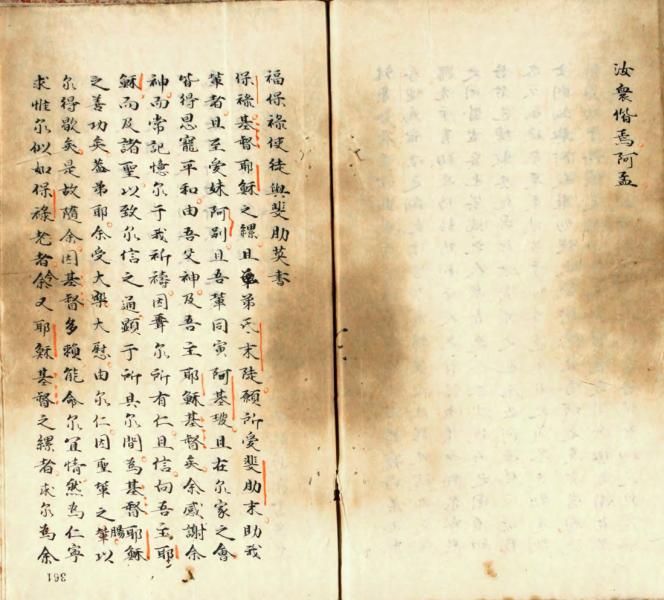 汝衆偕焉阿孟
福保祿使徒與斐肋英書
保祿基督耶穌之縲且弟氐末陡願所愛斐肋末助我
輩者且至愛妹阿別且吾輩同寅阿基玻且在尔家之會
皆得恩寵平和由吾父神及吾主耶穌基督矣余感謝余
神而常記憶尔于我祈禱因聞尔所有仁且信向吾主耶
穌而及諸聖以致尔信之通顕于所具尔間為基督耶穌
之善功矣蓋弟耶余受大樂大慰由尔仁因聖輩之腸以
尔得歇矣是故隨余因基督多賴能命尔宜情然為仁寧
求惟尔似如保祿老者余又耶穌基督之縲者求尔為余
361